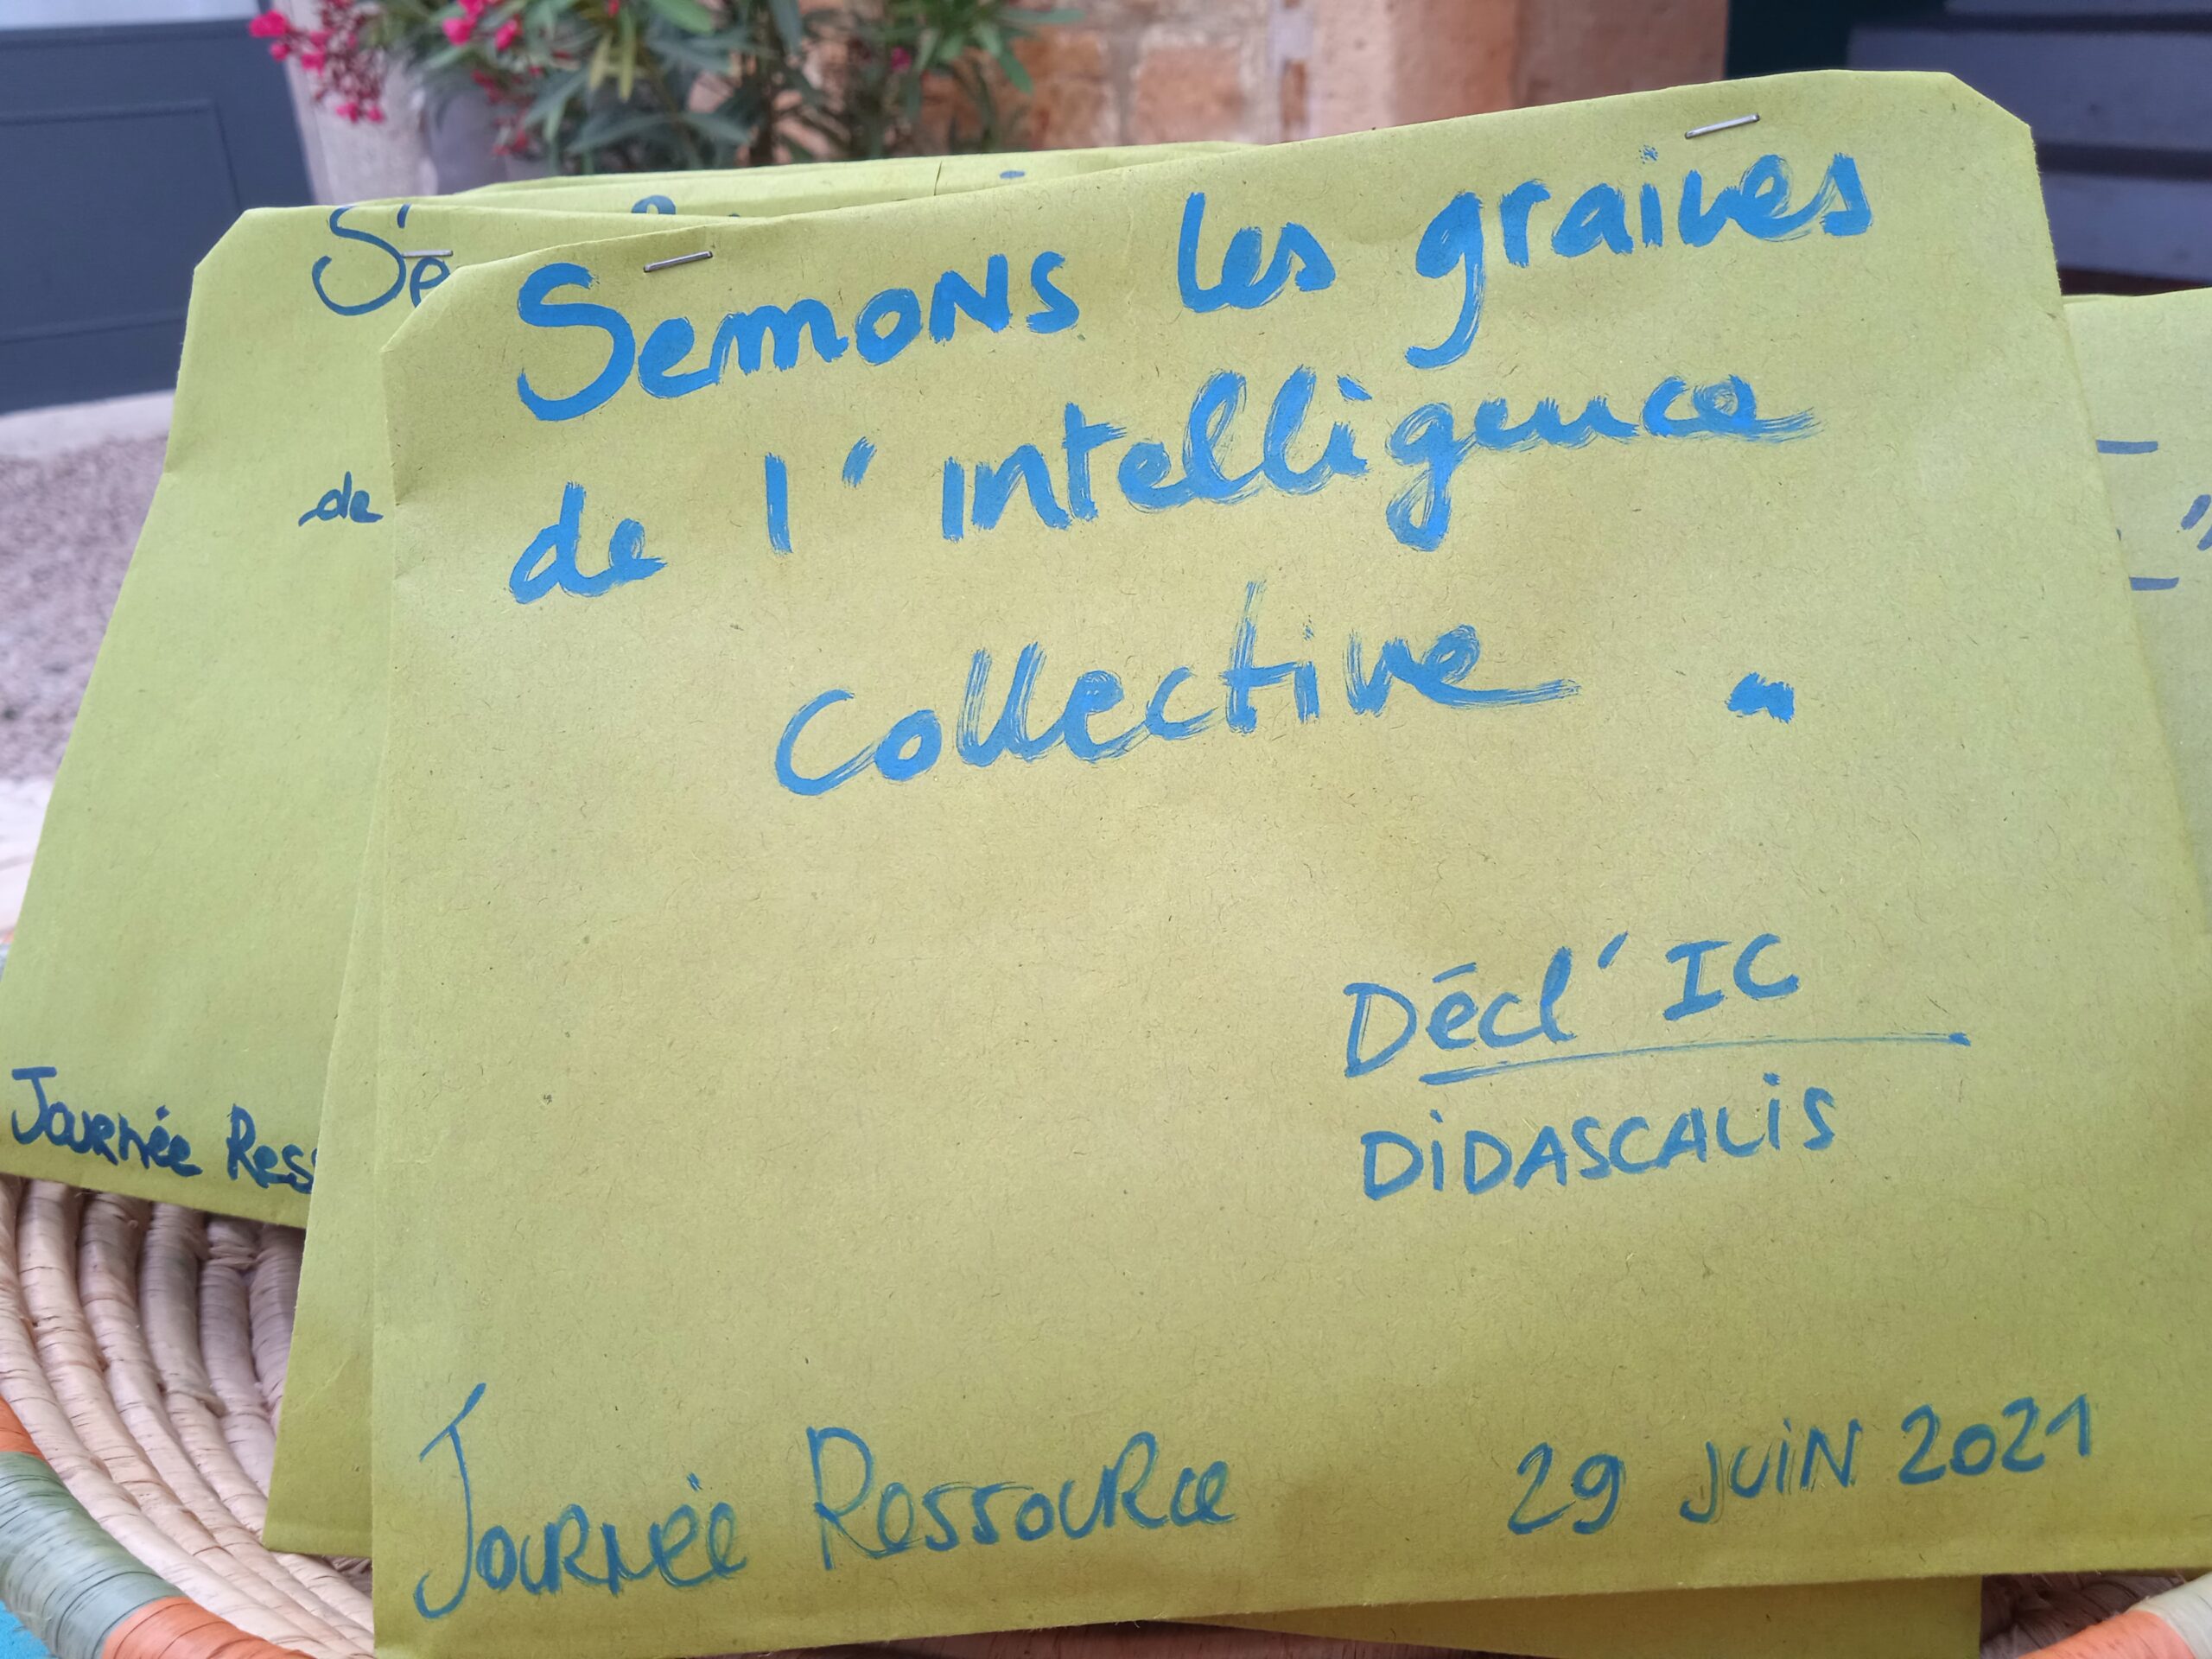 Semons les graines
de l'intelligence
Collective "
Décl'IC
DiDASCALiS
Journée Ressource 29 JUiN 2021
Se
de
Journée Ress